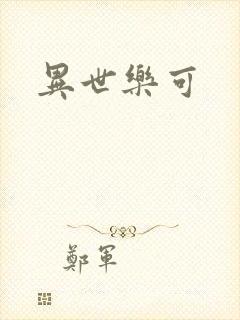 異世樂可
鄭軍